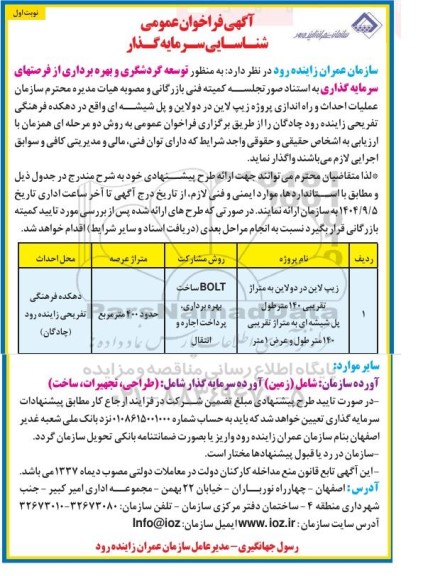 نوبت اول
آگهی فراخوان عمومی
شناسایی سرمایه گذار
سازمان عمران زاینده رود در نظر دارد: به منظور توسعه گردشگری و بهره برداری از فرصتهای
سرمایه گذاری به استناد صورتجلسه کمیته فنی بازرگانی و مصوبه هیات مدیره محترم سازمان
عملیات احداث و راه اندازی پروژه زیپ لاین در دولاین و پل شیشه ای واقع در دهکده فرهنگی
تفریحی زاینده رود چادگان را از طریق برگزاری فراخوان عمومی به روش دو مرحله ای همزمان با
ارزیابی به اشخاص حقیقی و حقوقی واجد شرایط که دارای توان فنی، مالی و مدیریتی کافی و سوابق
اجرایی لازم می‌باشند واگذار نماید.
*لذا متقاضیان محترم می توانند جهت ارائه طرح پیشنهادی خود به شرح مندرج در جدول ذیل
و مطابق با استانداردها، موارد ایمنی و فنی لازم، از تاریخ درج آگهی تا آخر ساعت اداری تاریخ
۱۴۰۴/۹/۵ به سازمان ارائه نمایند. در صورتی که طرح های ارائه شده پس از بررسی مورد تایید کمیته
بازرگانی قرار بگیرد نسبت به انجام مراحل بعدی (دریافت اسناد و سایر شرایط) اقدام خواهد شد.
ردیف نام پروژه روش مشارکت متراژ عرصه محل احداث
۱
زیپ لاین در دولاین به متراژ
تقریبی ۱۴۰ متر طول
پل شیشه ای به متراژ تقریبی
۱۴۰ متر طول و عرض ۱ متر
BOLT ساخت
بهره برداری،
پرداخت اجاره و
انتقال
حدود ۴۰۰ متر مربع
دهکده فرهنگی
تفریحی زاینده رود
(چادگان)
سایر موارد:
آورده سازمان: شامل (زمین) آورده سرمایه گذار شامل: (طراحی، تجهیزات، ساخت)
-در صورت تایید طرح پیشنهادی مبلغ تضمین شرکت در فرایند ارجاع کار مطابق پیشنهادات
سرمایه گذاری تعیین خواهد شد که باید به حساب شماره ۰۱۰۸۶۱۵۰۰۱۰۰۰ نزد بانک ملی شعبه غدیر
اصفهان بنام سازمان عمران زاینده رود واریز یا بصورت ضمانتنامه بانکی تحویل سازمان گردد.
-سازمان در رد یا قبول پیشنهادها مختار است.
-این آگهی تابع قانون منع مداخله کارکنان دولت در معاملات دولتی مصوب دیماه ۱۳۳۷ می باشد.
آدرس: اصفهان - چهارراه نورباران - خیابان ۲۲ بهمن - مجموعه اداری امیر کبیر - جنب
شهرداری منطقه ۴ - ساختمان دفتر مرکزی سازمان - تلفن سازمان: ۳۲۶۷۳۰۸۰-۳۲۶۷۳۰۱۰
آدرس سایت سازمان: www.ioz.ir ایمیل سازمان: Info@ioz
رسول جهانگیری - مدیرعامل سازمان عمران زاینده رود